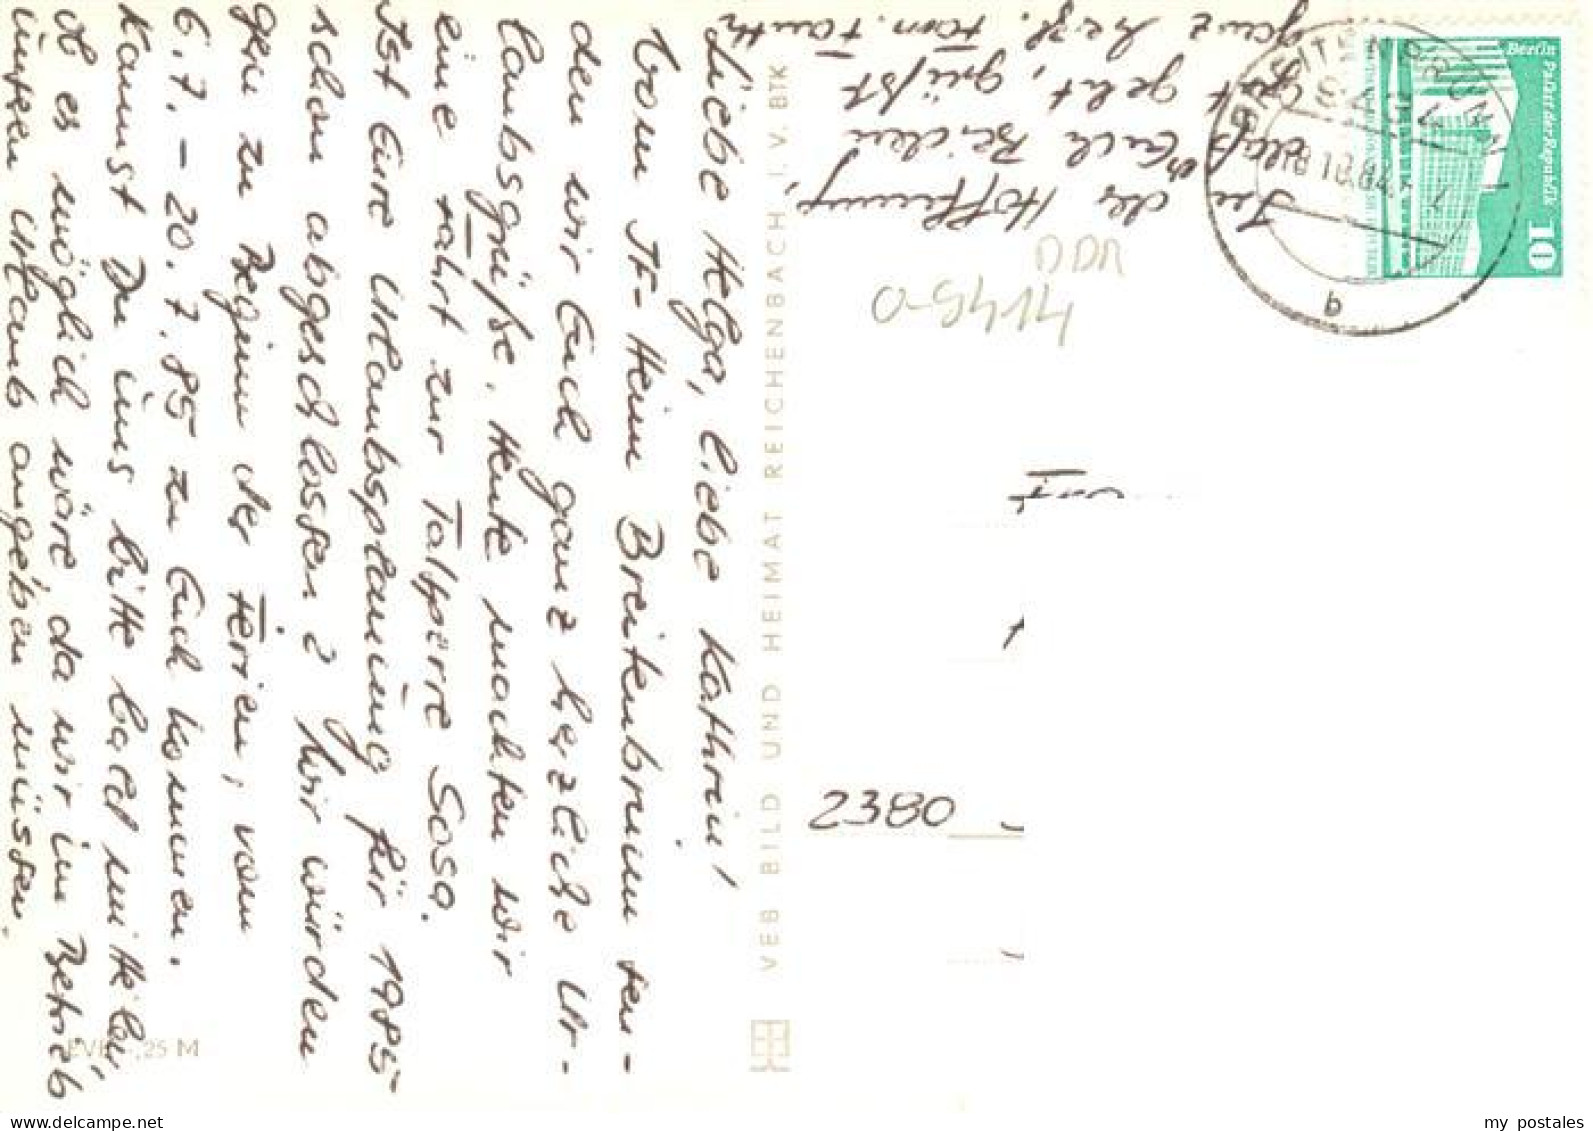 Liebe Helga, liebe Kathrin!
Vom FF-Heim Breitenbrunn sen-
den wir Euch ganz herzliche Ur-
laubsgrüße. Heute machten wir
eine Fahrt zur Talsperre Sosa.
Ist Eure Urlaubsplanung für 1985
schon abgeschlossen? Wir würden
gern zu Beginn der Ferien, vom
6.7. - 20.7.85 zu Euch kommen.
Kannst Du uns bitte bald mitteilen
ob es möglich wäre da wir im Betrieb
unseren Urlaub angeben müssen.
In der Hoffnung,
daß es Euch Beiden
gut geht, grüßt
ganz herzl. Fam.
VEB BILD UND HEIMAT REICHENBACH I. V. BTK
EVP -,25 M
DDR
2380
BREITENBRUNN
18.10.84
b
Berlin Palast der Republik
10
my postales